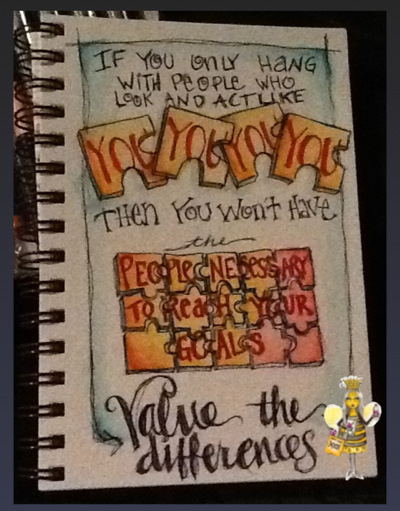 IF YOU ONLY HANG
WITH PEOPLE WHO
LOOK AND ACT LIKE
YOU YOU YOU YOU
THEN YOU WON'T HAVE
the
PEOPLE NECESSARY
TO REACH YOUR
GOALS
Value the
differences